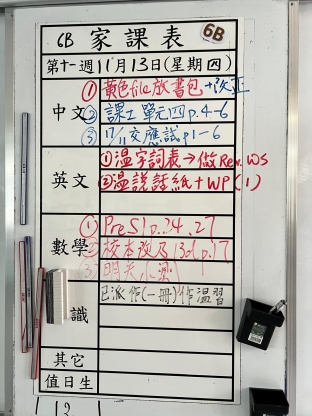 6B 家課表 6B
第十一週11月13日(星期四)
中文
①黃色file放書包+改正
②課工單元四p.4-6
③17/11交應試p1-6
英文
①溫字詞表→做Rev. WS
②溫說話紙+WP(1)
數學
①Pre S1 p.24, 27
②校本改及1301 p.17
③明天小測
識
已派作(一冊)作溫習
其它
值日生
12